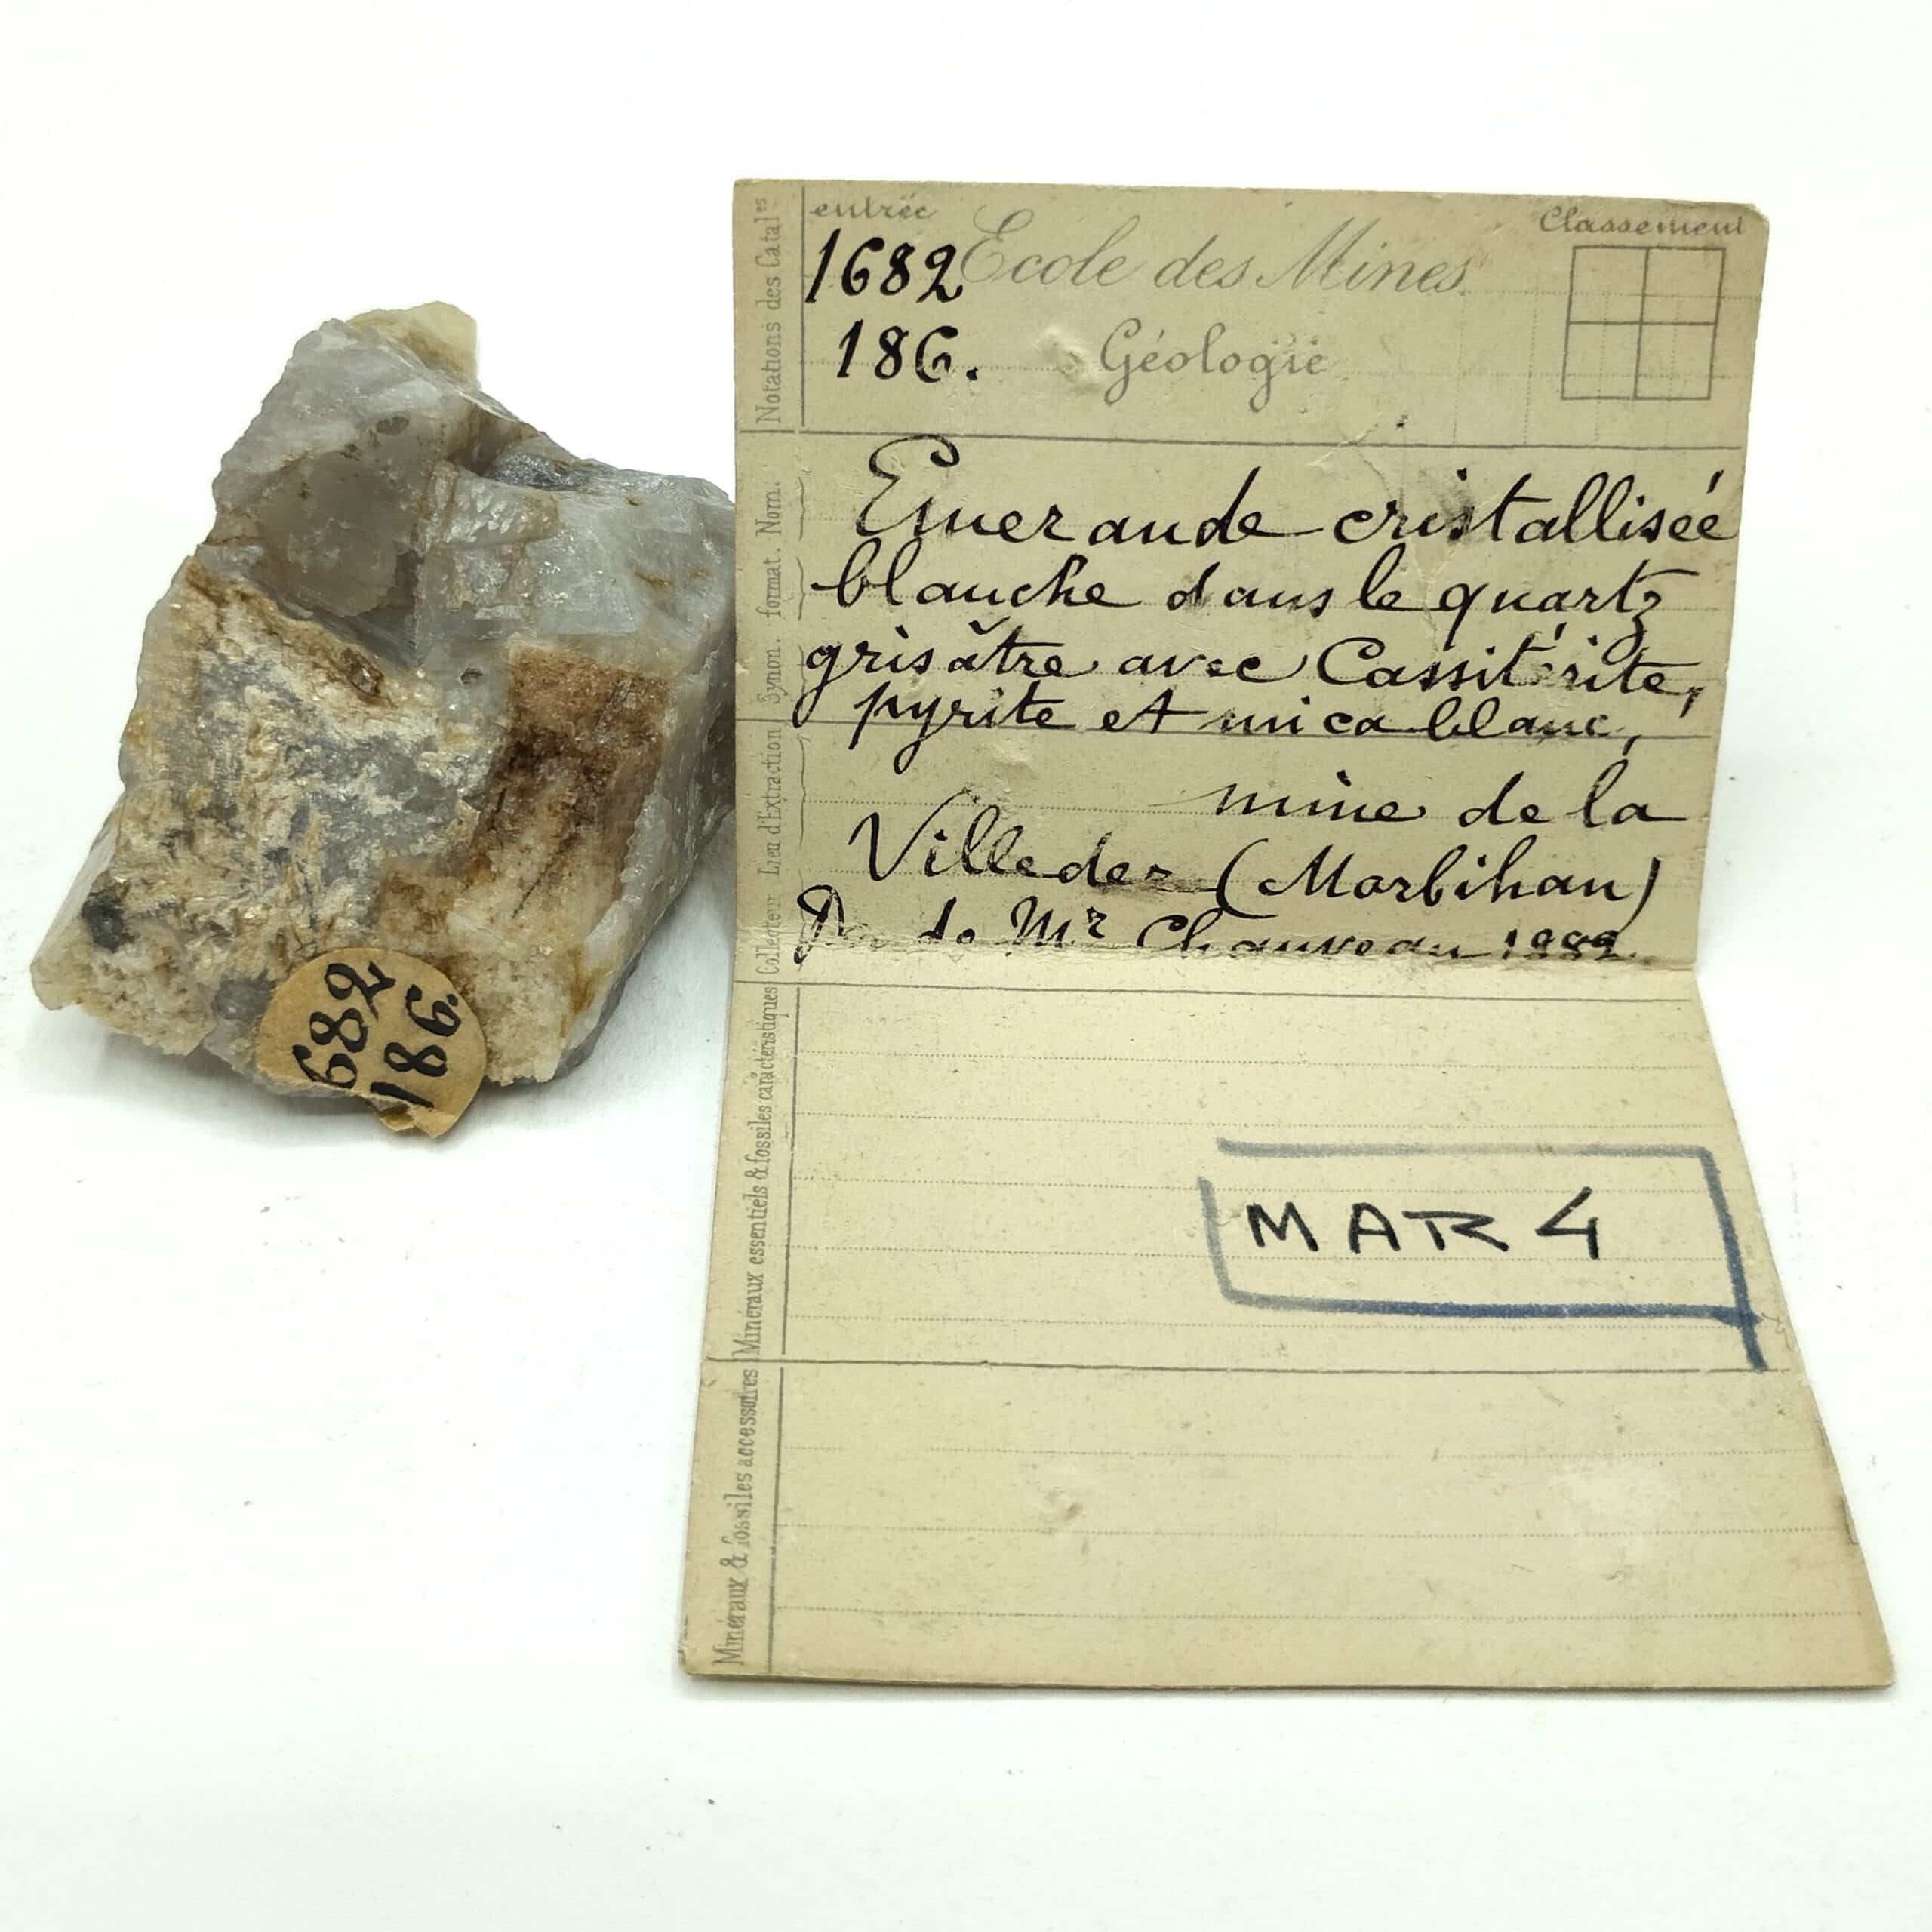 682
186.
Notations des Catal.es
entrée
Classement
1682 Ecole des Mines
186. Géologie
Synon. format. Nom.
Emeraude cristallisée
blanche dans le quartz
grisâtre avec Cassitérite,
pyrite et mica blanc,
Lieu d'Extraction
mine de la
Villeder (Morbihan)
Collecteur
de Mr Chauveau 1882.
Minéraux essentiels & fossiles caractéristiques
MAR 4
Minéraux & fossiles accessoires